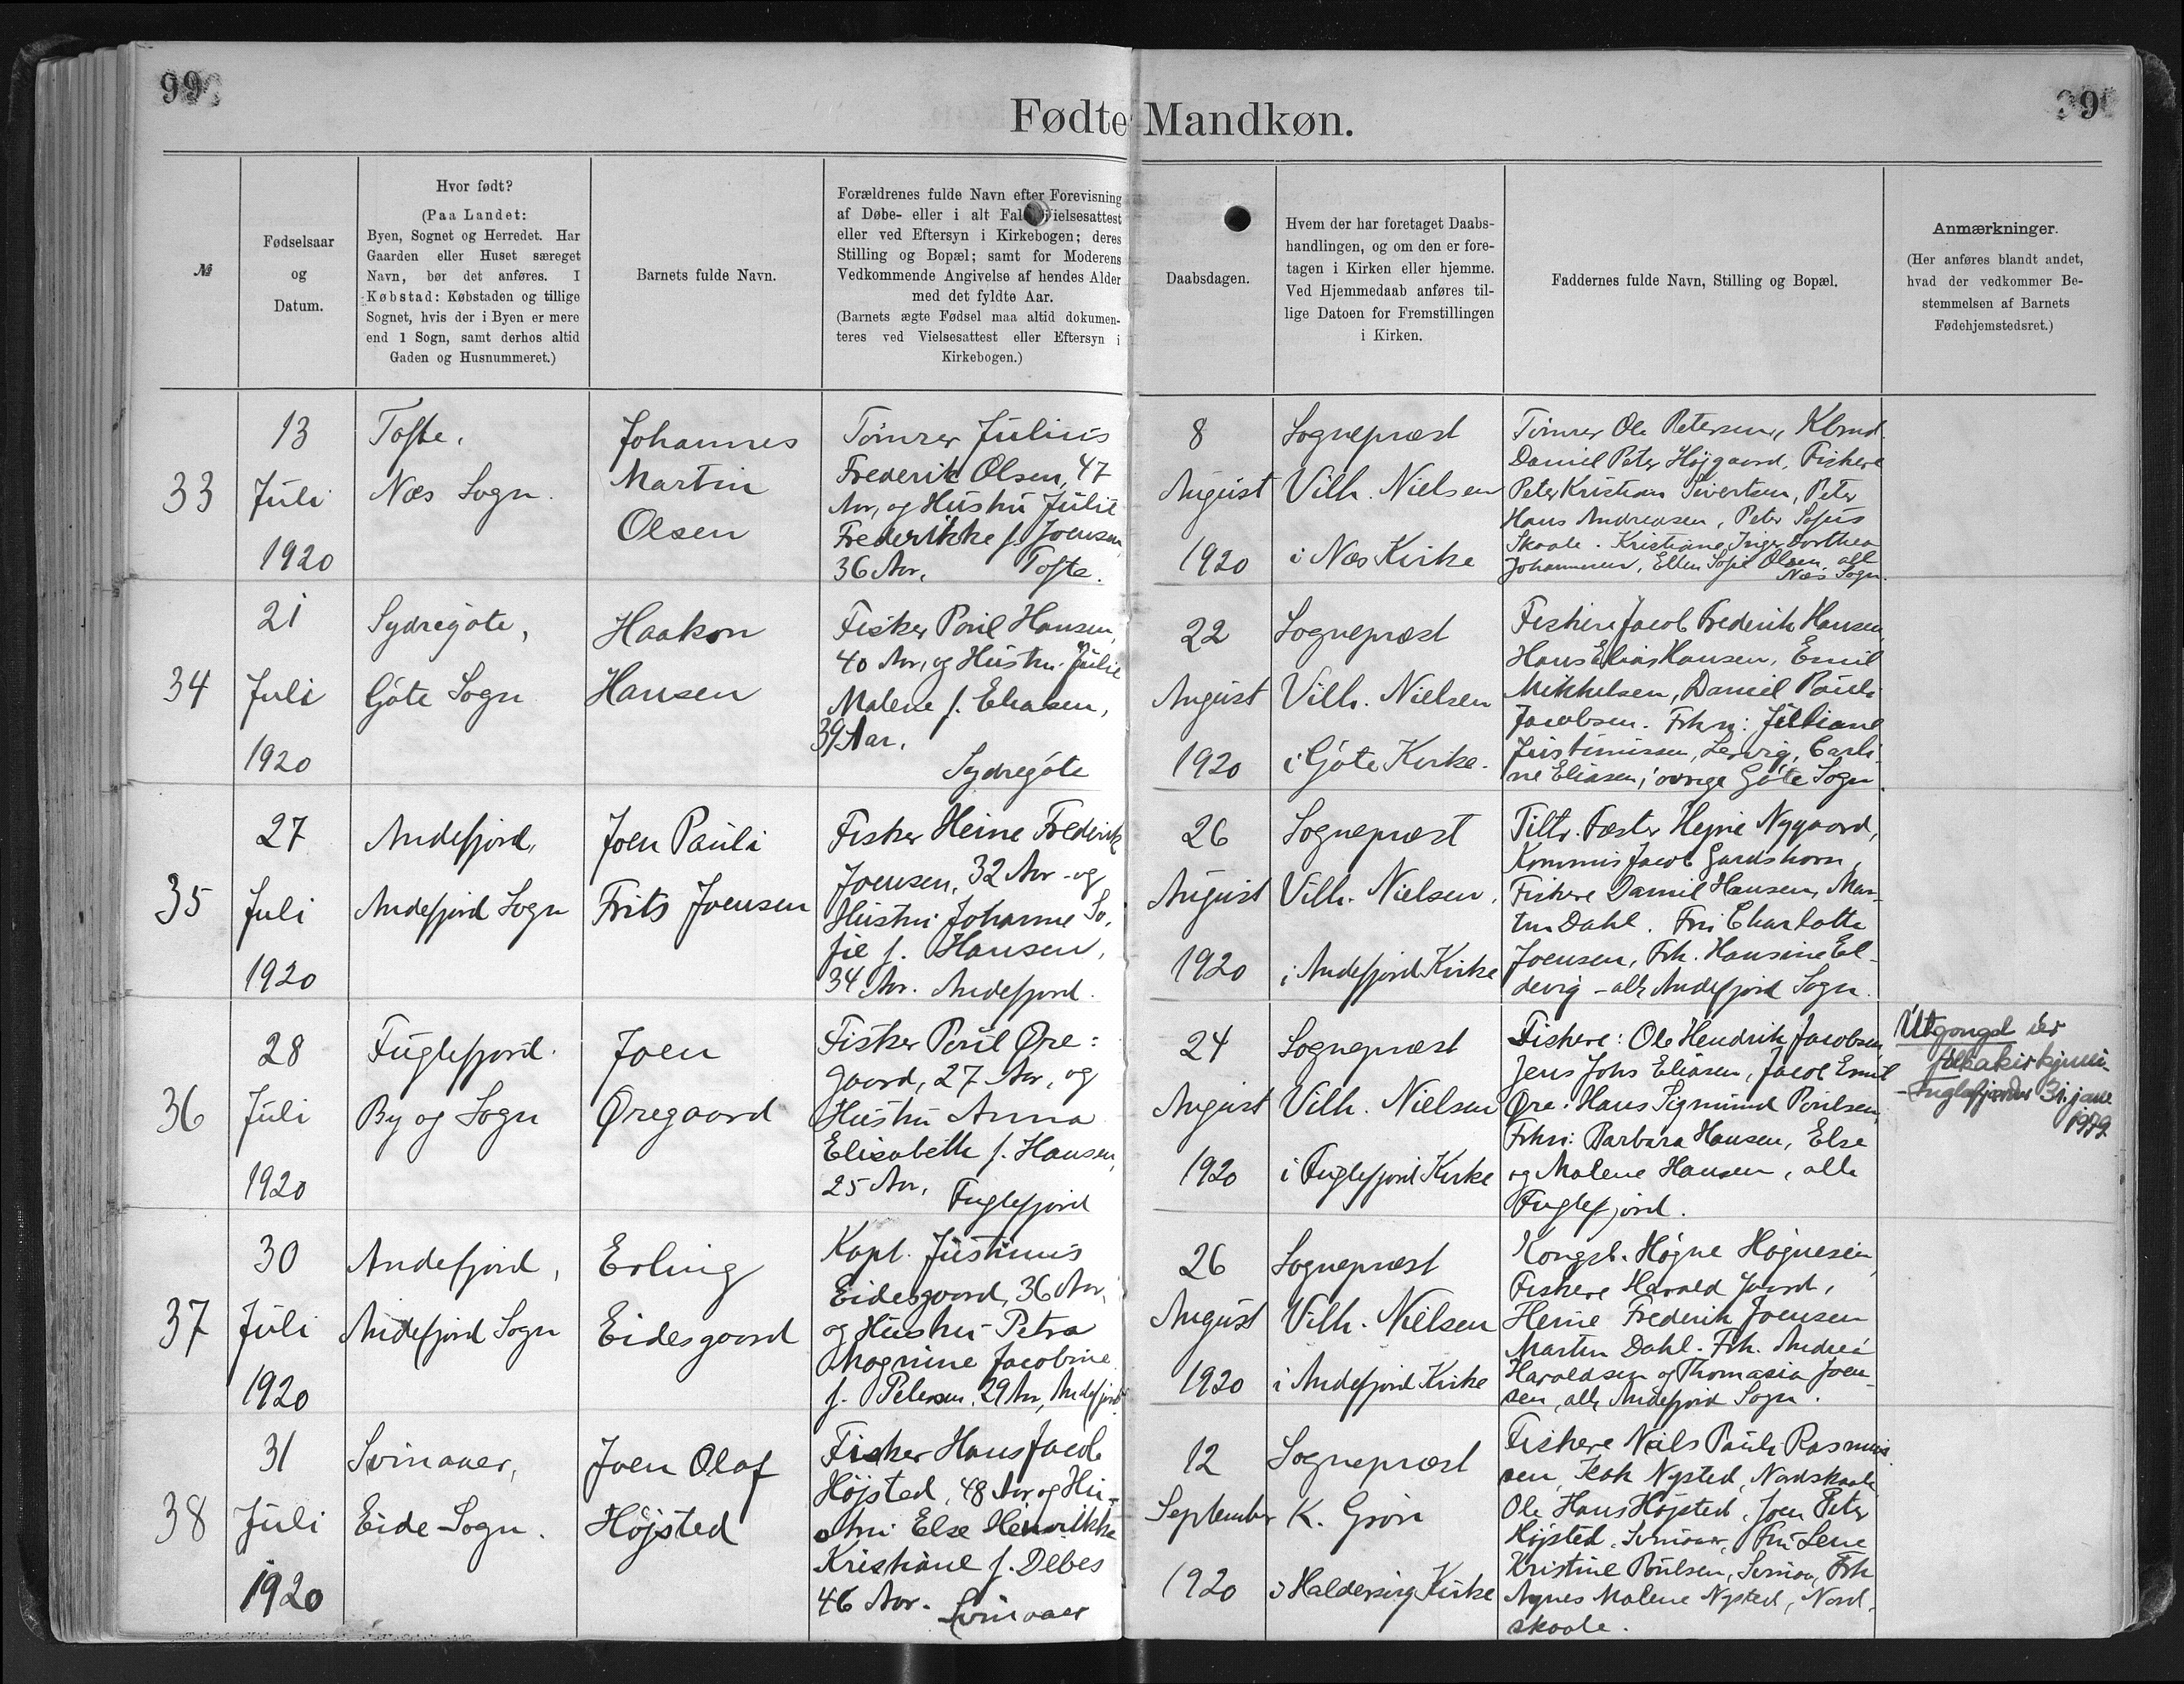 99
99
Fødte Mandkøn.
№
Fødselsaar
og
Datum.
Hvor født?
(Paa Landet:
Byen, Sognet og Herredet. Har
Gaarden eller Huset særeget
Navn, bør det anføres. I
Købstad: Købstaden og tillige
Sognet, hvis der i Byen er mere
end 1 Sogn, samt derhos altid
Gaden og Husnummeret.)
Barnets fulde Navn.
Forældrenes fulde Navn efter Forevisning
af Døbe- eller i alt Fald Vielsesattest
eller ved Eftersyn i Kirkebogen; deres
Stilling og Bopæl; samt for Moderens
Vedkommende Angivelse af hendes Alder
med det fyldte Aar.
(Barnets ægte Fødsel maa altid dokumen-
teres ved Vielsesattest eller Eftersyn i
Kirkebogen.)
Daabsdagen.
Hvem der har foretaget Daabs-
handlingen, og om den er fore-
tagen i Kirken eller hjemme.
Ved Hjemmedaab anføres til-
lige Datoen for Fremstillingen
i Kirken.
Faddernes fulde Navn, Stilling og Bopæl.
Anmærkninger.
(Her anføres blandt andet,
hvad der vedkommer Be-
stemmelsen af Barnets
Fødehjemstedsret.)
33
13
Juli
1920
Tofte,
Næs Sogn.
Johannes
Martin
Olsen
Tømrer Julius
Frederik Olsen, 47
Aar, og Hustru Julie
Frederikke f. Joensen
36 Aar, Tofte.
8
August
1920
Sognepræst
Vilh. Nielsen
i Næs Kirke
Tømrer Ole Petersen,
Daniel Peter Højgaard, Fiskere
Peter Kristian Sivertsen, Peter
Hans Andreasen, Peter Sofus
Skaale. Kristiane Inger Dorthea
Johannesen, Ellen Sofie Olsen, alle
Næs Sogn.
34
21
Juli
1920
Sydregöte,
Göte Sogn
Haakon
Hansen
Fisker Poul Hansen,
40 Aar, og Hustru Julie
Malene f. Eliasen,
39 Aar,
Sydregöte
22
August
1920
Sognepræst
Vilh. Nielsen
i Göte Kirke.
Fiskere Jacob Frederik Hansen,
Hans Elias Hansen, Emil
Mikkelsen, Daniel Pauli
Jacobsen. Frkn: Juliane
Justinussen, Lervig, Carli-
ne Eliasen, övrige Göte Sogn.
35
27
Juli
1920
Andefjord,
Andefjord Sogn
Joen Pauli
Frits Joensen
Fisker Heine Frederik
Joensen, 32 Aar og
Hustru Johanne So-
fie f. Hansen,
34 Aar. Andefjord.
26
August
1920
Sognepræst
Vilh. Nielsen,
i Andefjord Kirke
Fæster Nygaard,
Kommis Jacob Gardshorn,
Fiskere Daniel Hansen, Mar-
tin Dahl. Fru Charlotte
Joensen, Frk. Hansine El-
devig - alle Andefjord Sogn.
36
28
Juli
1920
Fuglefjord.
By og Sogn
Joen
Øregaard
Fisker Poul Øre=
gaard, 27 Aar, og
Hustru Anna
Elisabeth f. Hansen,
25 Aar, Fuglefjord
24
August
1920
Sognepræst
Vilh. Nielsen
i Fuglefjord Kirke
Fiskere: Ole Hendrik Jacobsen,
Jens Johs Eliasen, Jacob Emil
Øre. Hans Sigmund Poulsen,
Frkn: Barbara Hansen, Else
og Malene Hansen, alle
Fuglefjord.
Útgongd úr
fólkakirkjuni
31. jan.
37
30
Juli
1920
Andefjord,
Andefjord Sogn
Erling
Eidesgaard
Kapt. Justinus
Eidesgaard, 36 Aar,
og Hustru Petra
Magnine Jacobine
f. Petersen, 29 Aar, Andefjord
26
August
1920
Sognepræst
Vilh. Nielsen
i Andefjord Kirke
Kongsb. Högne Högnesen,
Fiskere Harald Joensen,
Heine Frederik Joensen
Martin Dahl. Frk. Andrea
Haraldsen og Thomasia Joen-
sen, alle Andefjord Sogn.
38
31
Juli
1920
Svinaaer,
Eide Sogn.
Joen Olaf
Højsted
Fisker Hans Jacob
Højsted, 48 Aar og Hu-
stru Else Henrikke
Kristiane f. Debes
46 Aar. Svinaaer
12
September
1920
Sognepræst
K. Grön
i Haldersvig Kirke
Fiskere Niels Pauli Rasmus-
sen, Isak Nysted, Nordskaale
Ole Hans Højsted, Joen Peter
Højsted, Svinaaer, Fru Lene
Kristine Poulsen, Svinaa, Frk
Agnes Malene Nysted, Nord-
skaale.